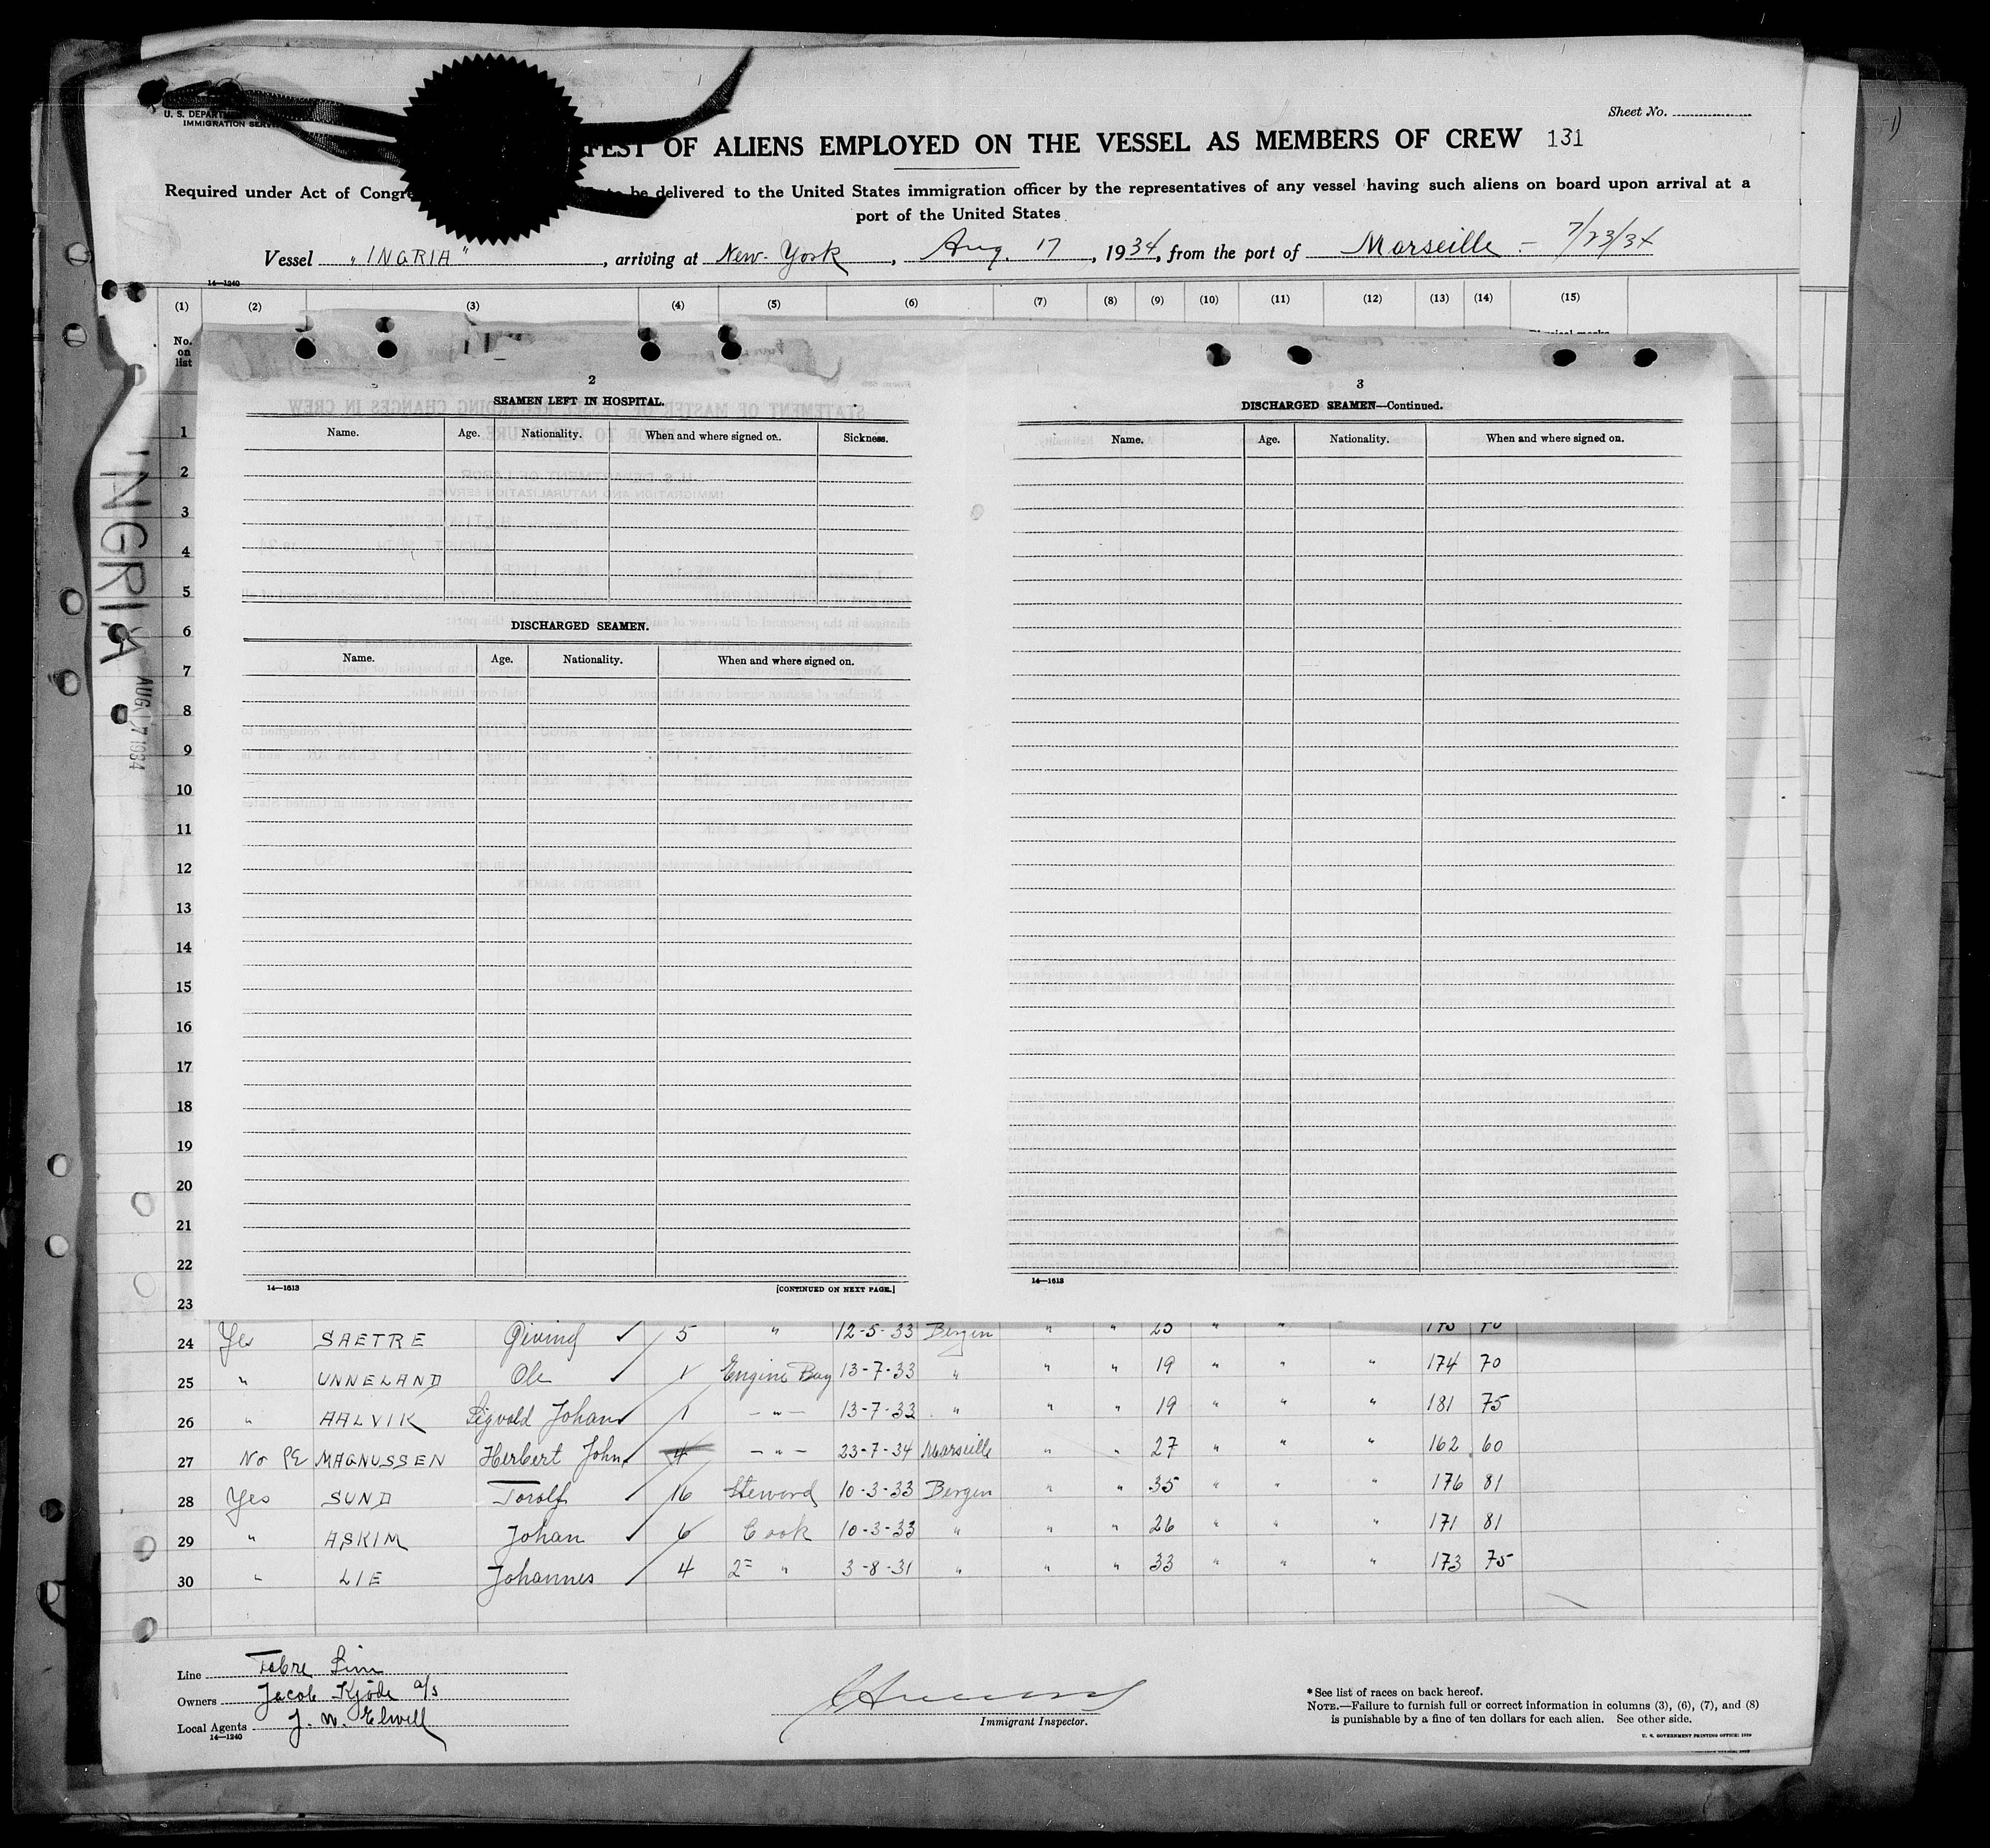 Sheet No.
U. S. DEPART
IMMIGRATION SERV
FEST OF ALIENS EMPLOYED ON THE VESSEL AS MEMBERS OF CREW 131
Required under Act of Congre to be delivered to the United States immigration officer by the representatives of any vessel having such aliens on board upon arrival at a
port of the United States
Vessel "INGRIA", arriving at New York, Aug. 17, 1934, from the port of Marseille - 7/23/34
14—1240
(1) (2) (3) (4) (5) (6) (7) (8) (9) (10) (11) (12) (13) (14) (15)
No.
on
list
INGRIA
AUG 17 1934
2
SEAMEN LEFT IN HOSPITAL.
Name. Age. Nationality. When and where signed on. Sickness.
DISCHARGED SEAMEN.
Name. Age. Nationality. When and where signed on.
14—1613 [CONTINUED ON NEXT PAGE.]
3
DISCHARGED SEAMEN—Continued.
Name. Age. Nationality. When and where signed on.
14—1613
1
2
3
4
5
6
7
8
9
10
11
12
13
14
15
16
17
18
19
20
21
22
23
24 Yes SAETRE 5 " 12-5-33 Bergen " " 25 " " " 175 70
25 " UNNELAND Ole 1 Engine Boy 13-7-33 " " " 19 " " " 174 70
26 " AALVIK Sigvald Johan 1 - " - 13-7-33 " " " 19 " " " 181 75
27 No PE MAGNUSSEN Herbert John 4 - " - 23-7-34 Marseille " " 27 " " " 162 60
28 Yes SUND Torolf 16 Steward 10-3-33 Bergen " " 35 " " " 176 81
29 " ASKIM Johan 6 Cook 10-3-33 " " " 26 " " " 171 81
30 " LIE Johannes 4 2= " 3-8-31 " " " 33 " " " 173 75
Line Fabre Line
Owners Jacob Kjöde a/s
Local Agents J. W. Elwell
14—1240
Immigrant Inspector.
* See list of races on back hereof.
NOTE.—Failure to furnish full or correct information in columns (3), (6), (7), and (8)
is punishable by a fine of ten dollars for each alien. See other side.
U. S. GOVERNMENT PRINTING OFFICE: 1929